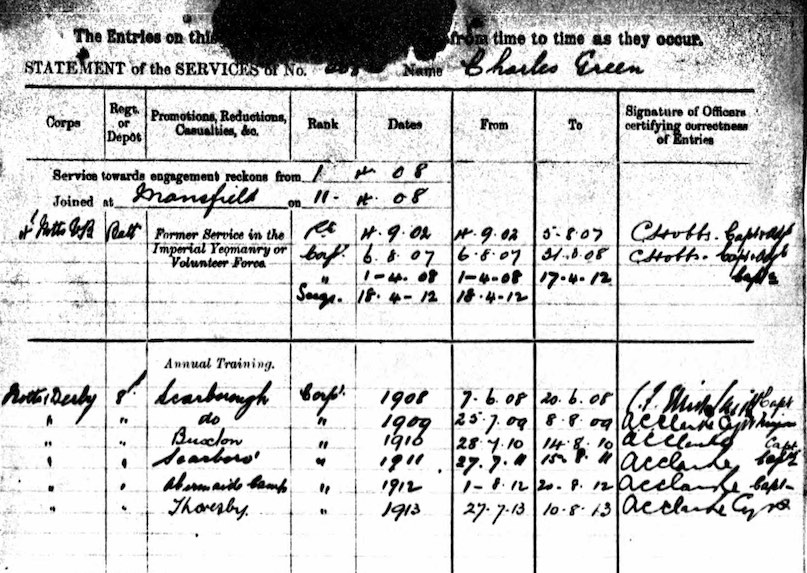 The Entries on this from time to time as they occur.
STATEMENT of the SERVICES of No. Name Charles Green
Corps Regt. or Depôt Promotions, Reductions, Casualties, &c. Rank Dates From To Signature of Officers certifying correctness of Entries
Service towards engagement reckons from 1 4 08
Joined at Mansfield on 11- 4 08
Batt Former Service in the Imperial Yeomanry or Volunteer Force. Pte 4.9.02 4.9.02 5.8.07
Corpl. 6.8.07 6.8.07 31.3.08
" 1-4.08 1-4.08 17.4.12
Sergt. 18.4-12 18.4-12
Annual Training.
Notts & Derby 8th Scarborough Corpl. 1908 7.6.08 20.6.08 Capt
" " do " 1909 25.7.09 8.8.09 A C Clarke
" " Buxton " 1910 28.7.10 14.8.10 A C Clarke Capt
" " Scarboro' " 1911 27.7.11 15.8.11 A C Clarke Capt
" " Camp " 1912 1-8.12 20.8.12 A C Clarke Capt
" " Thoresby " 1913 27.7.13 10.8.13 A C Clarke